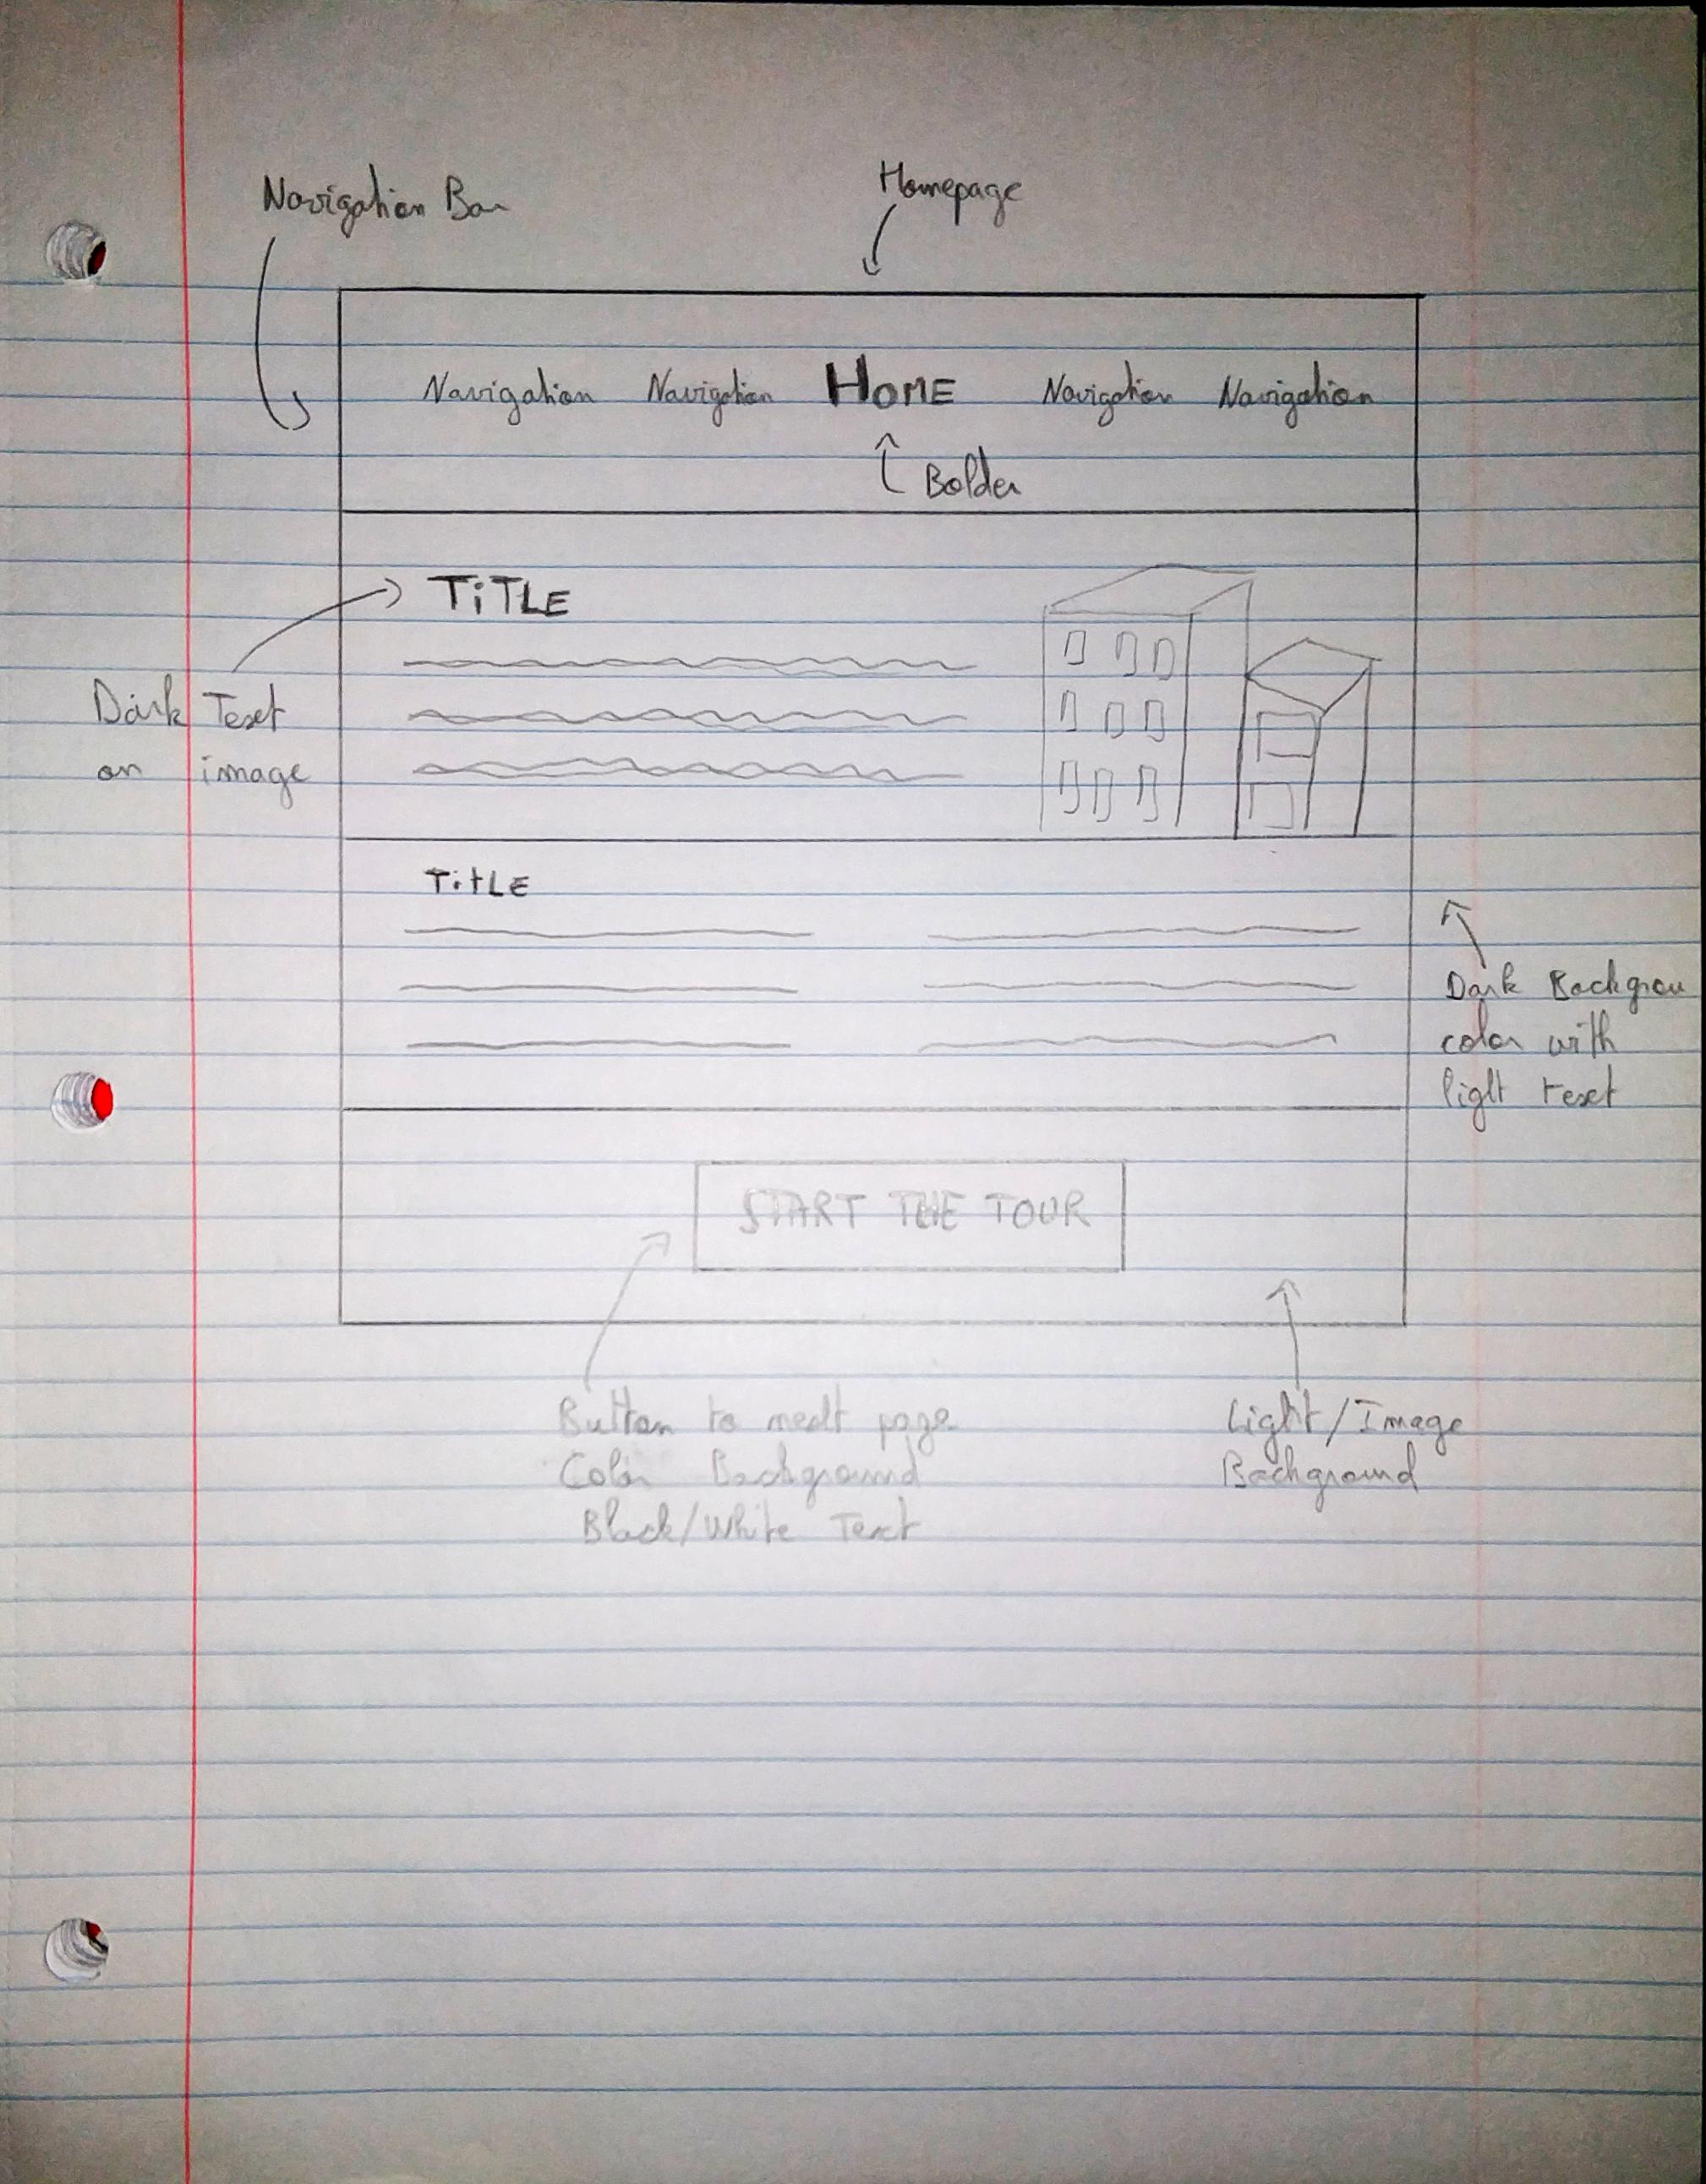 Navigation Bar
Homepage
Navigation Navigation HOME Navigation Navigation
Bolder
TiTLE
Dark Text
on image
TitLE
Dark Backgrou
color with
light text
START THE TOUR
Button to next page
Color Background
Black/White Text
Light/Image
Background